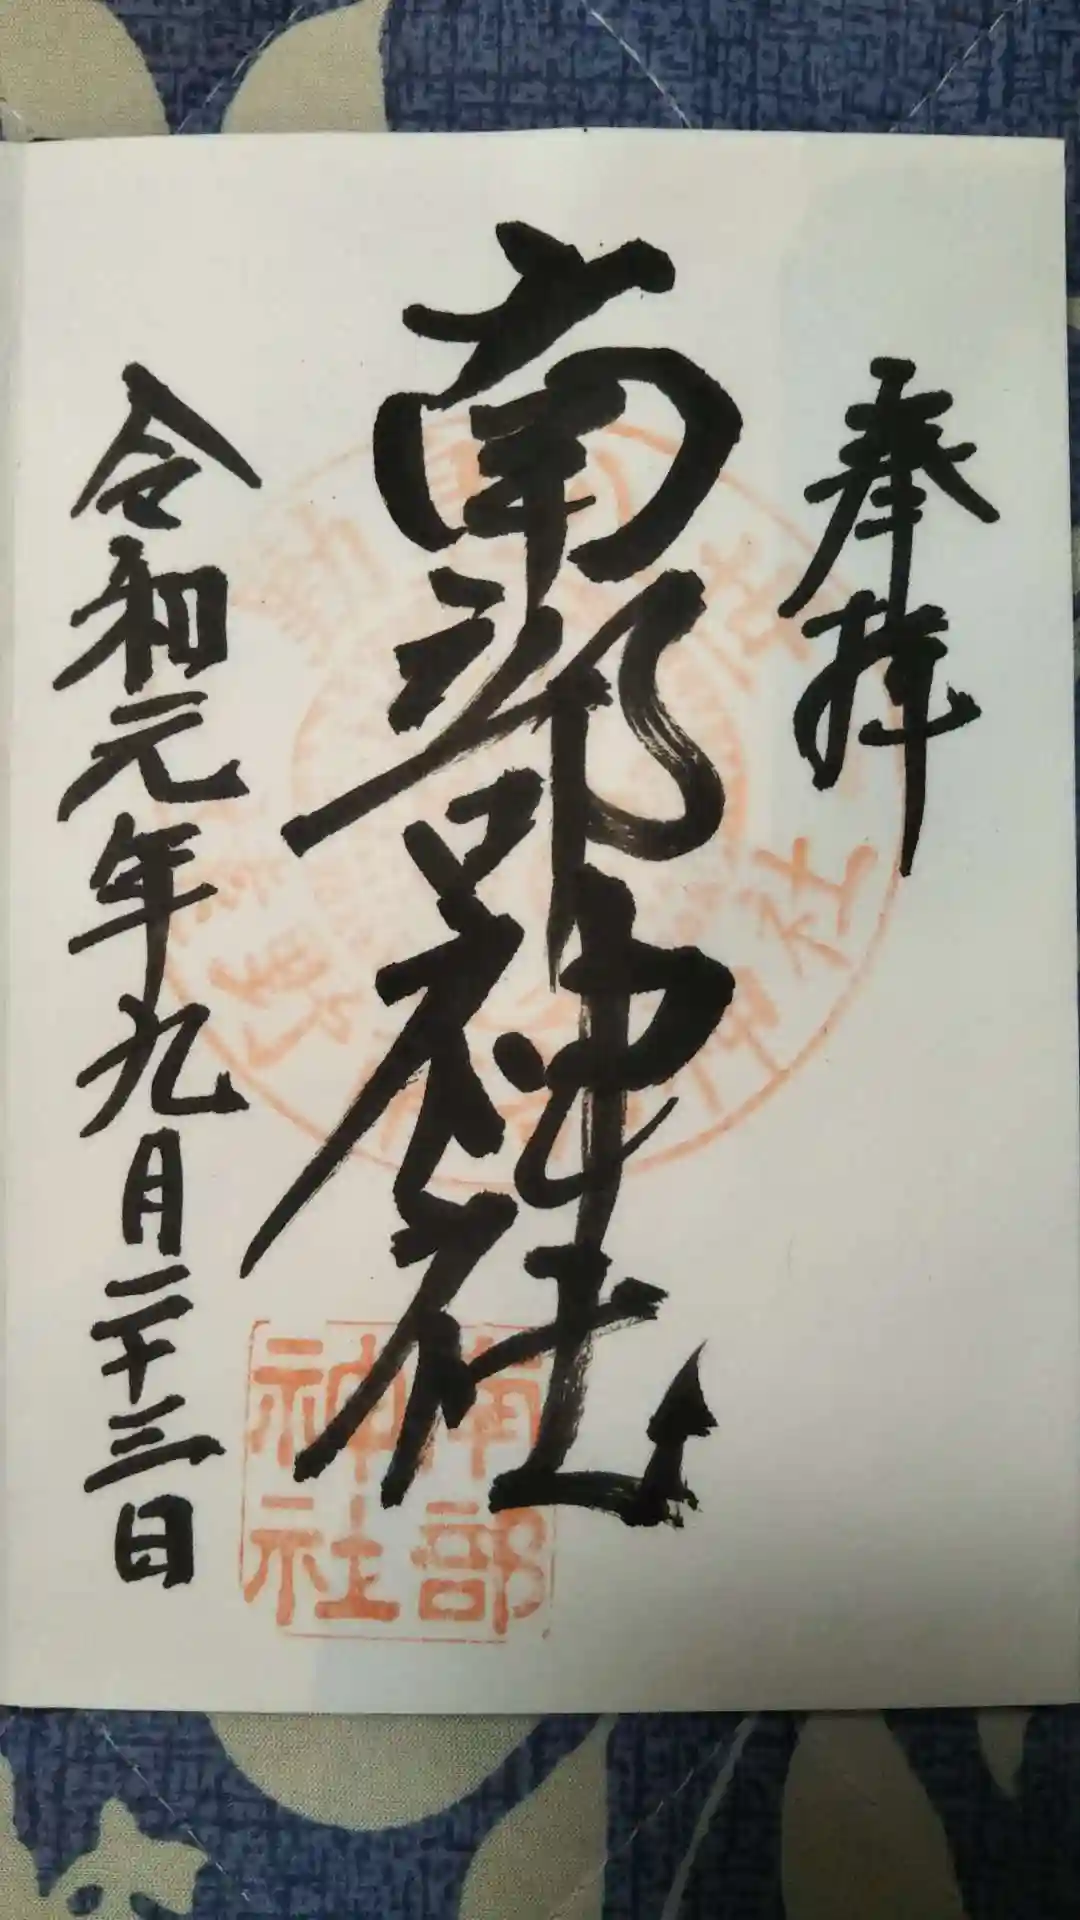 奉拝
南部神社
令和元年九月二十三日
南部
神社